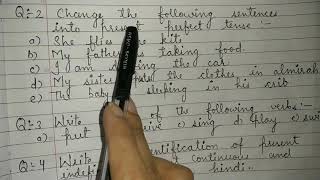 Q:-2 Change the following sentences
into present perfect tense
a) She flies the kite
b) My father is taking food.
c) I am driving the car
d) My sister the clothes in almirah
e) The baby sleeping in his crib
Q:-3 Write of the following verbs:-
a) put c) sing d) play e) swim
Q:-4 Write identification of present
continuous and
hindi.